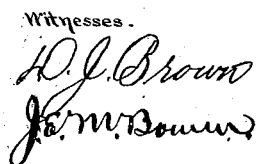 Witnesses.
D. J. Brown
J. E. M. Bowen.